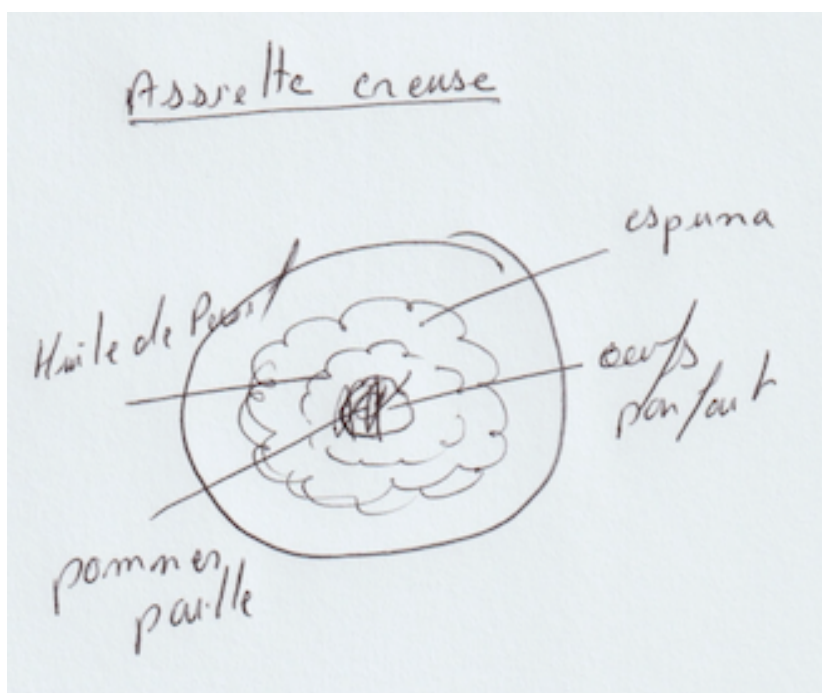 Assiette creuse
espuma
Huile de Persil
oeufs
parfait
pommes
paille